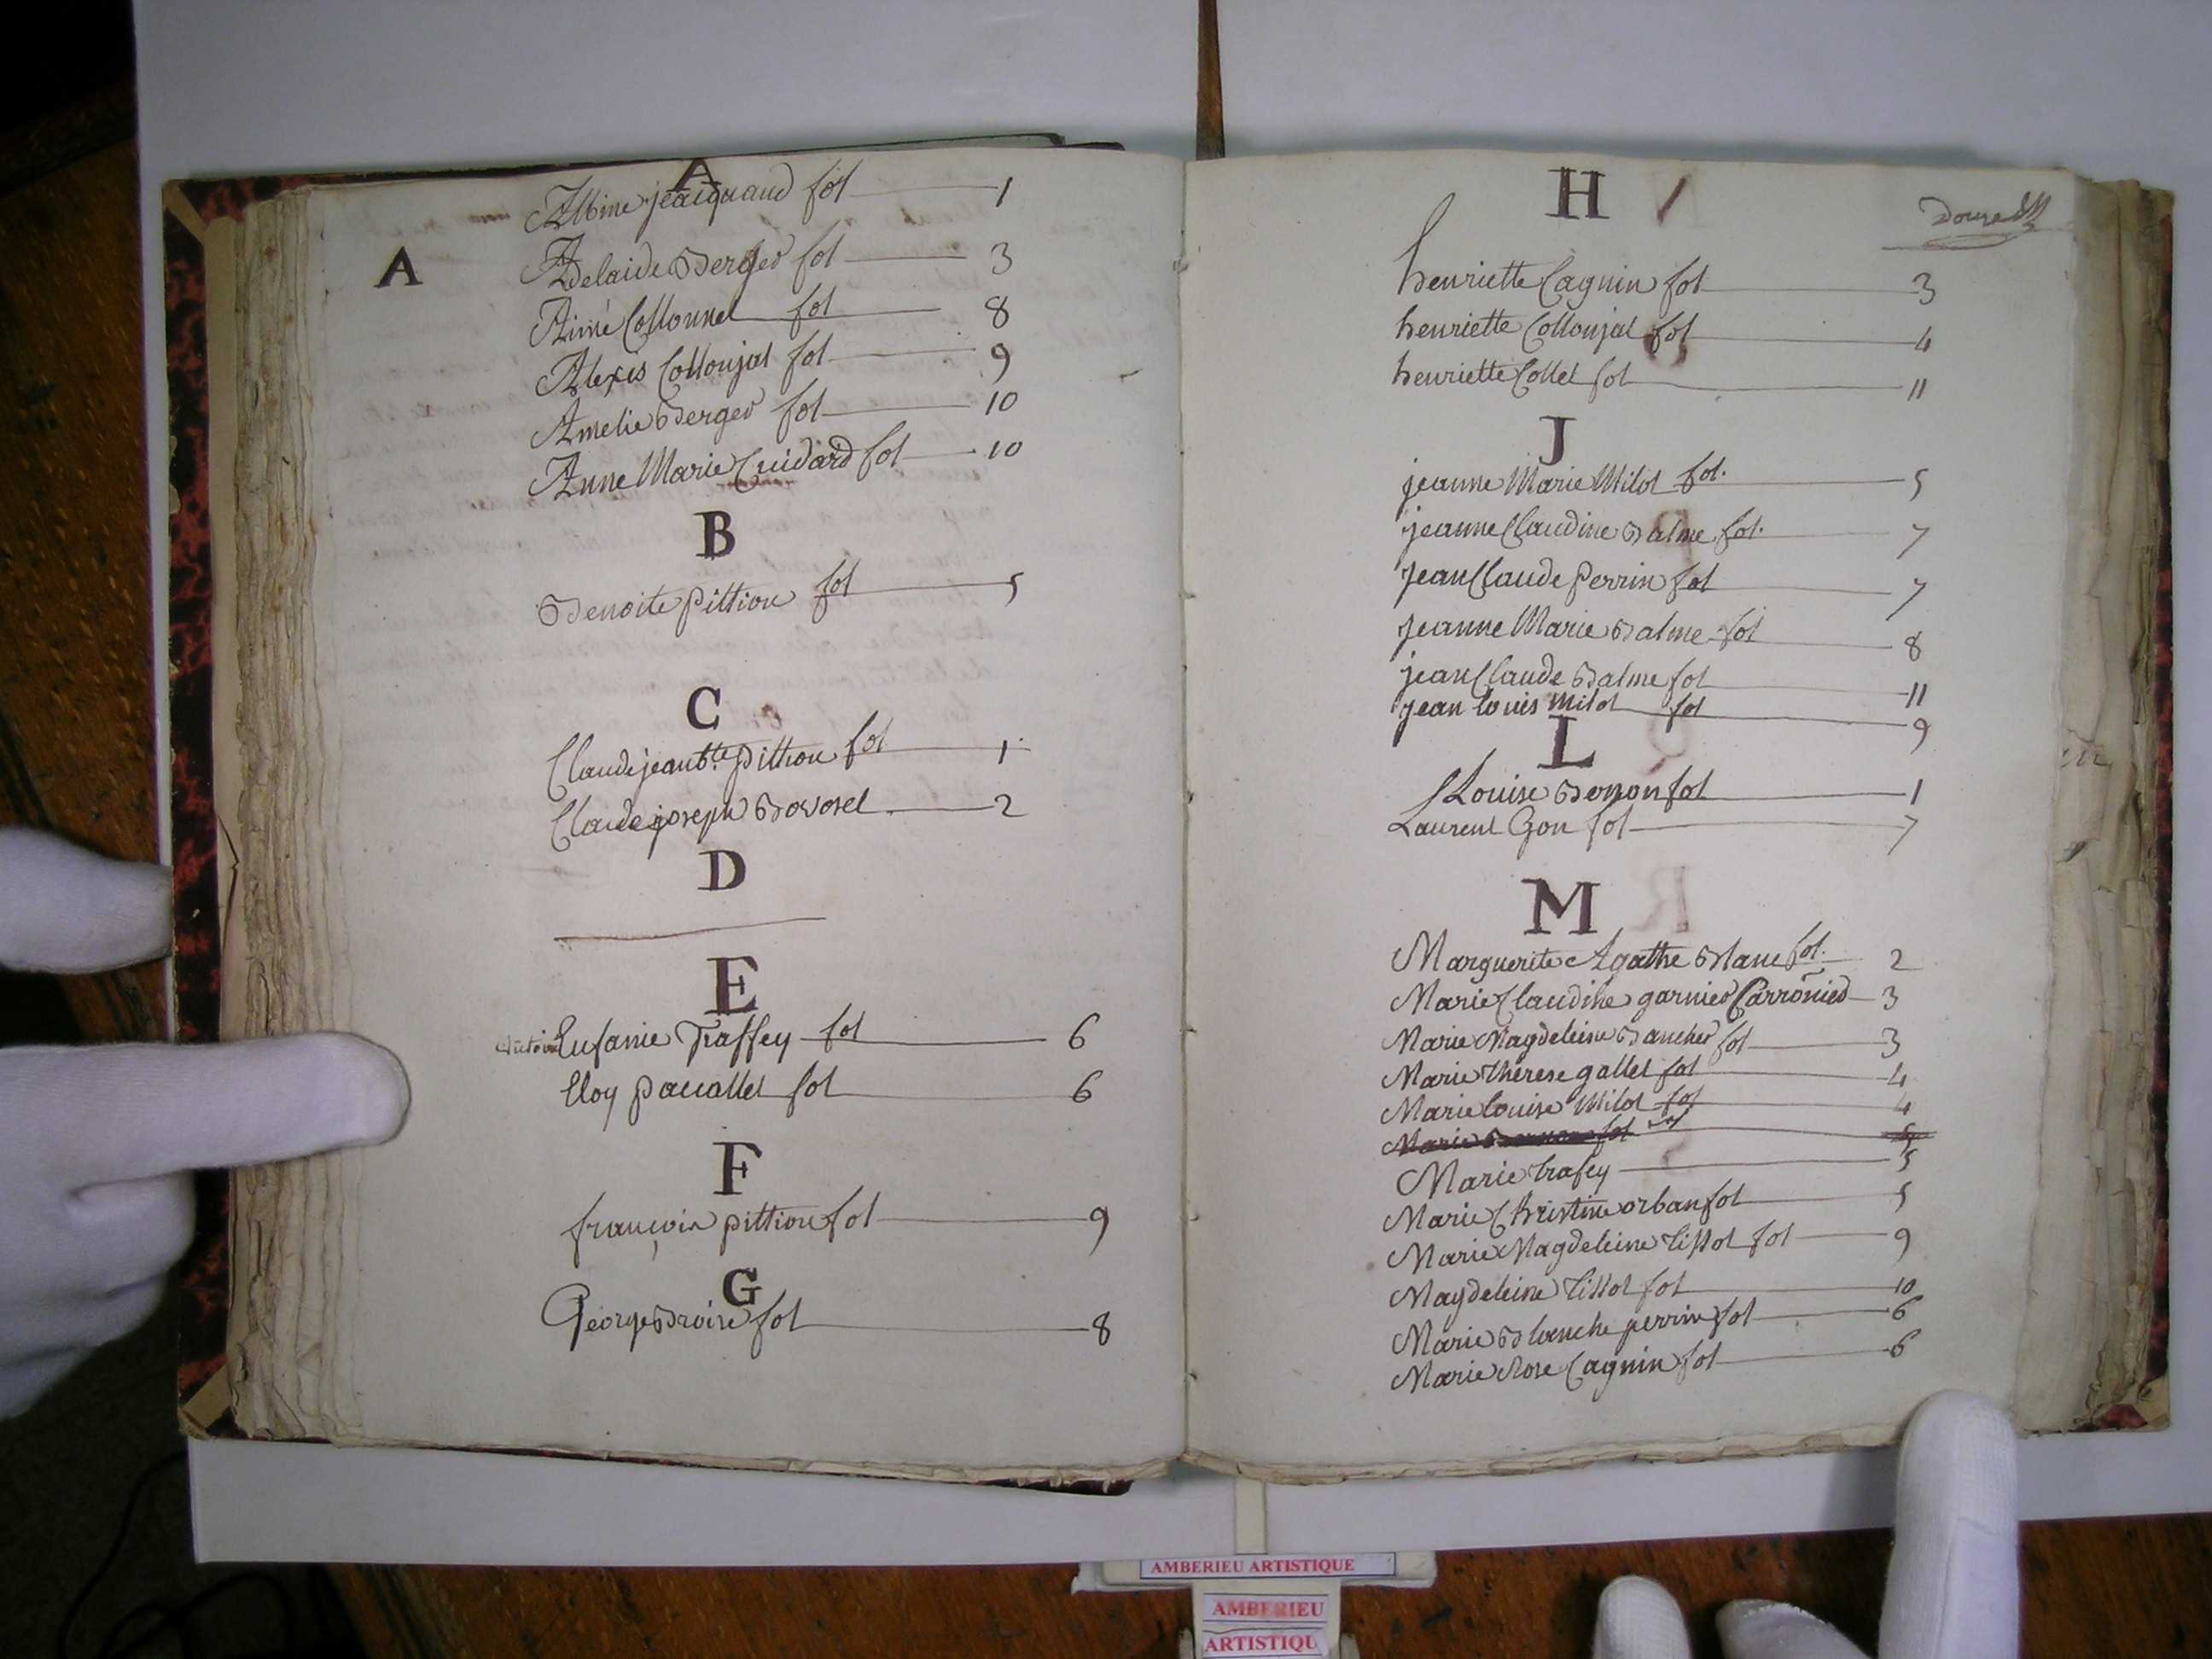 A
Albine jacquand fol 1
A
Adelaide Berger fol 3
Aimé Collonnel fol 8
Alexis Collonjat fol 9
Amelie Berger fol 10
Anne Marie Cuidard fol 10
B
Benoite pittion fol 5
C
Claude jean bte pittion fol 1
Claude joseph Bovorel 2
D
E
Eufanie Traffey fol 6
Eloy pacallet fol 6
F
françois pittion fol 9
G
George Broise fol 8
H
henriette Cagnin fol 3
henriette Collonjat fol 4
henriette Collet fol 11
J
jeanne Marie Milot fol. 5
jeanne Claudine Balme fol. 7
jean Claude perrin fol 7
jeanne Marie Balme fol 8
jean Claude Balme fol 11
jean louis milot fol 9
L
Louise Bonon fol 1
Laurent Gon fol 7
M
Marguerite Agathe Blanc fol. 2
Marie Claudine garnier Carronier 3
Marie Magdeleine Bancher fol 3
Marie therese gallet fol 4
Marie louise Milot fol 4
Marie fol 5
Marie trafey 5
Marie Christine orban fol 5
Marie Magdeleine tissot fol 9
Magdeleine tissot fol 10
Marie Blanche perrin fol 6
Marie Rose Cagnin fol 6
AMBERIEU ARTISTIQUE
AMBERIEU
ARTISTIQU